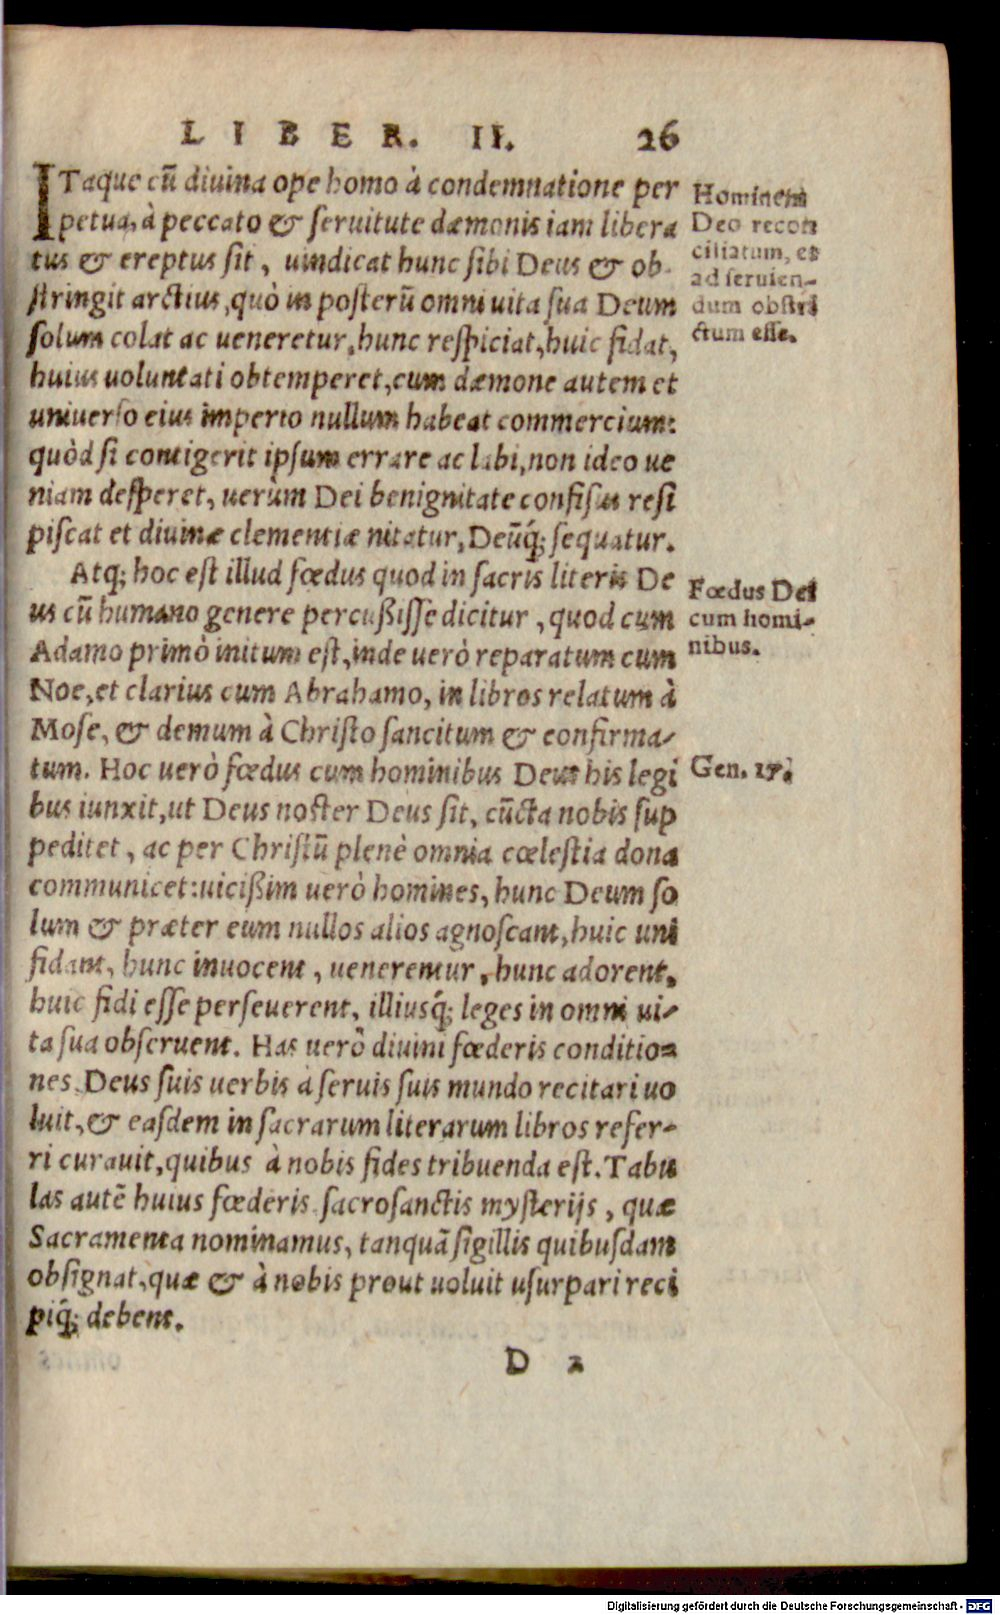 LIBER. II. 26
ITaque cū diuina ope homo à condemnatione per
petua, à peccato & seruitute dæmonis iam libera
tus & ereptus sit, uindicat hunc sibi Deus & ob-
stringit arctius, quò in posterū omni uita sua Deum
solum colat ac ueneretur, hunc respiciat, huic fidat,
huius uoluntati obtemperet, cum dæmone autem et
uniuerso eius imperio nullum habeat commercium:
quòd si contigerit ipsum errare ac labi, non ideo ue
niam desperet, uerùm Dei benignitate confisus resi
piscat et diuinæ clementiæ nitatur, Deūq́; sequatur.
Hominem
Deo recon
ciliatum, et
ad seruien-
dum obstri
ctum esse.
Atq; hoc est illud fœdus quod in sacris literis De
us cū humano genere percußisse dicitur, quod cum
Adamo primò initum est, inde uerò reparatum cum
Noe, et clarius cum Abrahamo, in libros relatum à
Mose, & demum à Christo sancitum & confirma-
tum. Hoc uerò fœdus cum hominibus Deus his legi
bus iunxit, ut Deus noster Deus sit, cūcta nobis sup
peditet, ac per Christū plenè omnia cœlestia dona
communicet: uicißim uerò homines, hunc Deum so
lum & præter eum nullos alios agnoscant, huic uni
fidant, hunc inuocent, uenerentur, hunc adorent,
huic fidi esse perseuerent, illiusq́; leges in omni ui-
ta sua obseruent. Has uerò diuini fœderis conditio-
nes Deus suis uerbis à seruis suis mundo recitari uo
luit, & easdem in sacrarum literarum libros refer-
ri curauit, quibus à nobis fides tribuenda est. Tabu
las autē huius fœderis sacrosanctis mysterijs, quæ
Sacramenta nominamus, tanquā sigillis quibusdam
obsignat, quæ & à nobis prout uoluit usurpari reci
piq́; debent.
Fœdus Dei
cum homi-
nibus.
Gen. 17.
D 2
Digitalisierung gefördert durch die Deutsche Forschungsgemeinschaft - DFG